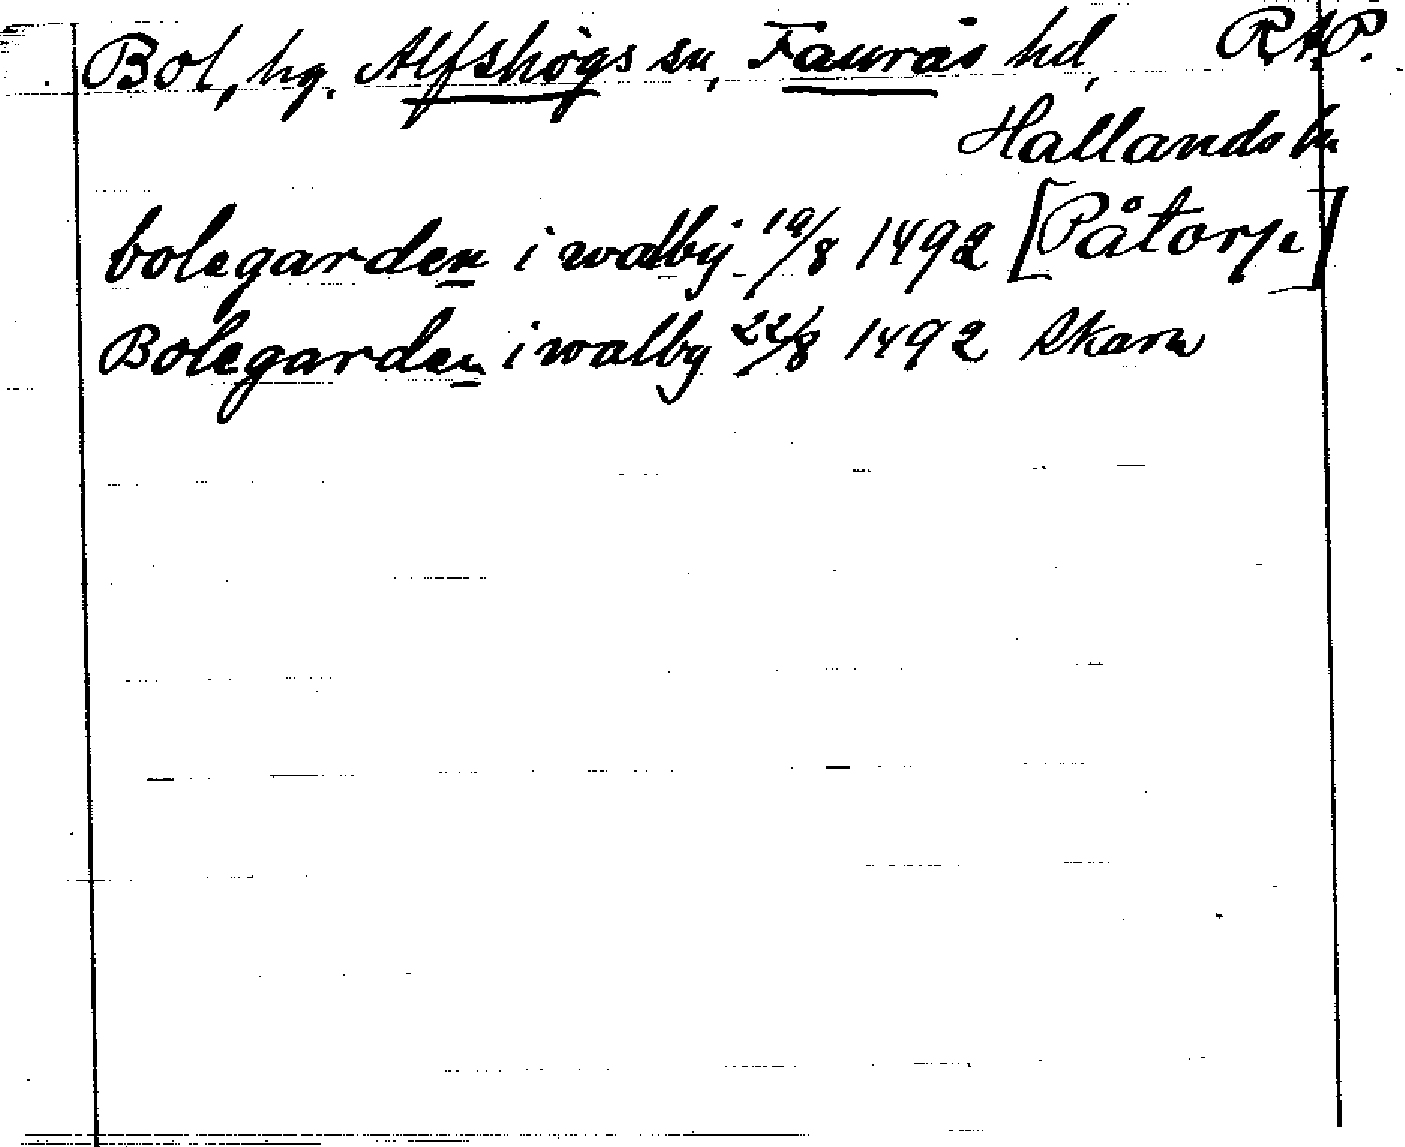 Bol, hg. Alfshögs sn, Faurås hd, RAP.
Hallands ln
bolegarden i walbÿ 19/8 1492 [Påtorp]
Bolegarden i walby 22/8 1492 Skara